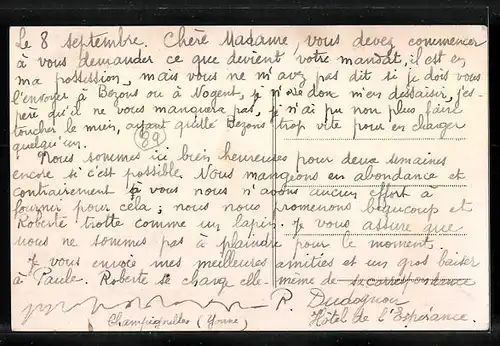 Le 8 septembre. Chère Madame, vous devez commencer
à vous demander ce que devient votre mandat, il est en
ma possession, mais vous ne m'avez pas dit si je dois vous
l'envoyer à Bezons ou à Nogent, je n'ose donc m'en dessaisir, j'es-
père qu'il ne vous manquera pas, je n'ai pu non plus faire
toucher le mien, ayant quitté Bezons trop vite pour en charger
quelqu'un.
Nous sommes ici bien heureuses pour deux semaines
encore si c'est possible. Nous mangeons en abondance et
contrairement à vous nous n'avons aucun effort à
fournir pour cela; nous nous promenons beaucoup et
Roberte trotte comme un lapin. Je vous assure que
nous ne sommes pas à plaindre pour le moment.
Je vous envoie mes meilleures amitiés et un gros baiser
à Paule. Roberte se charge elle-même de sa correspondance
P. Dudognon
Champignelles (Yonne) Hôtel de l'Espérance.